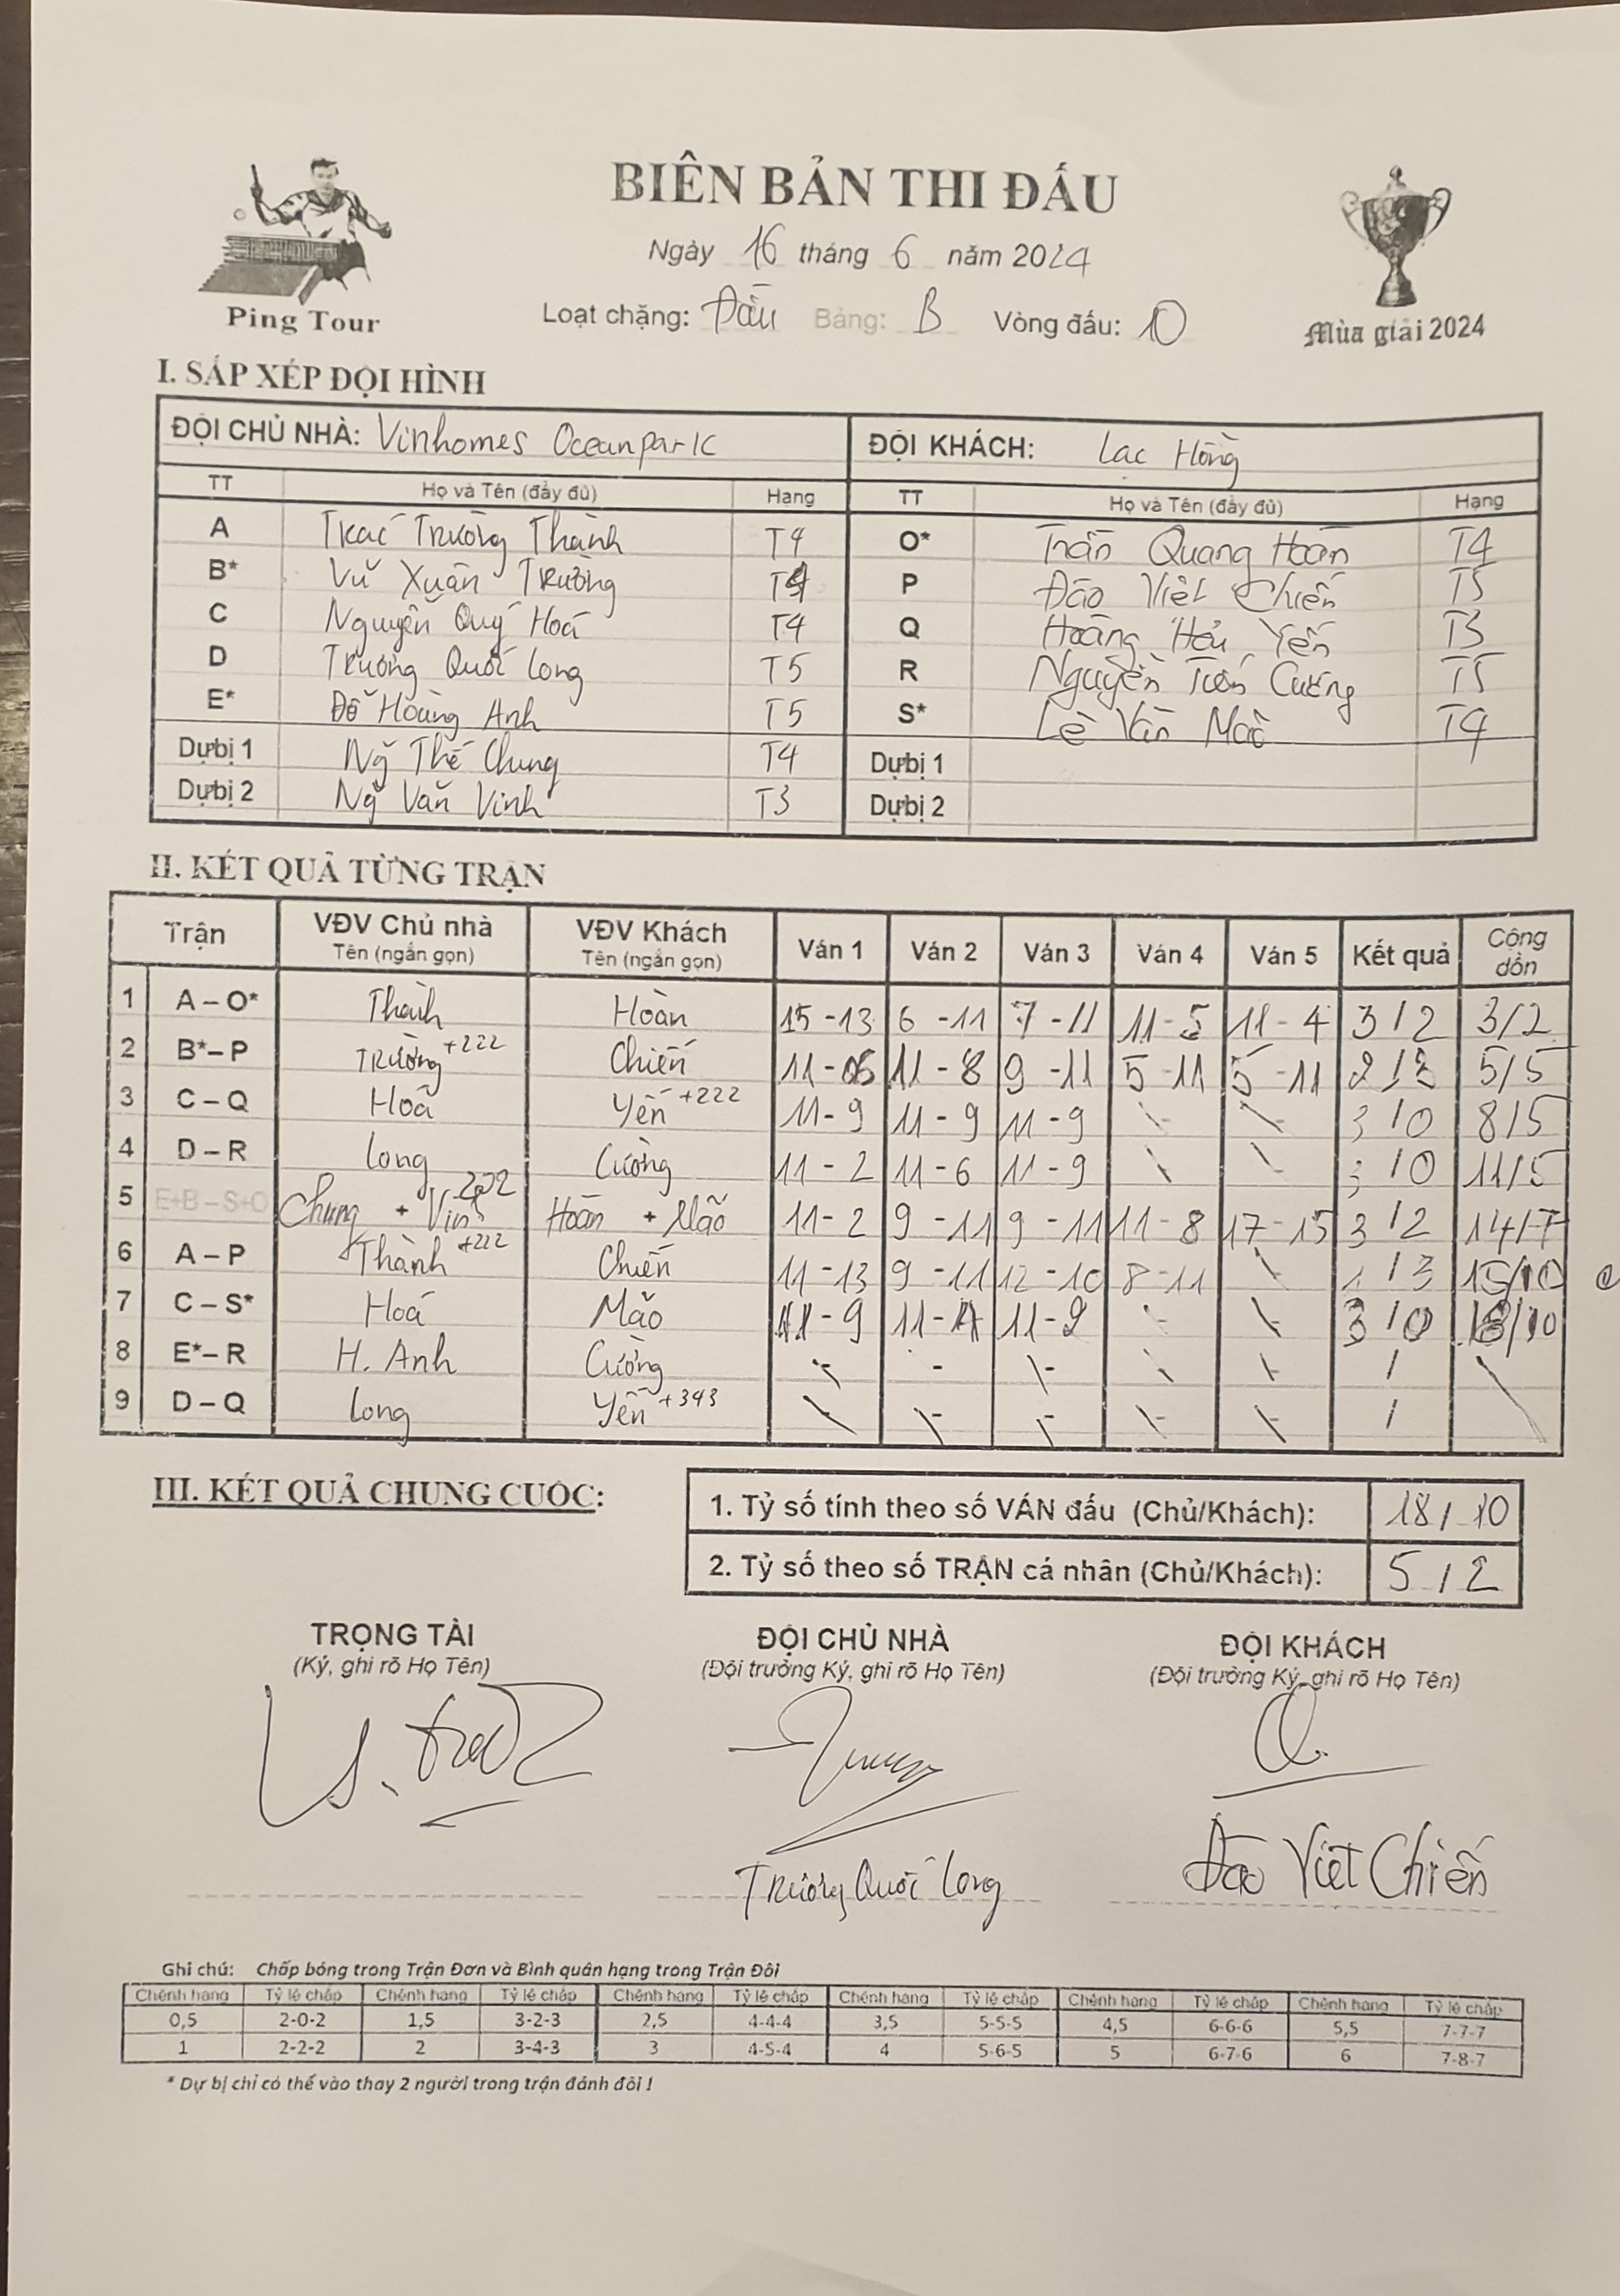 BIÊN BẢN THI ĐẤU
Ngày 16 tháng 6 năm 2024
Loạt chặng: Đầu Bảng: B Vòng đấu: 10
Ping Tour
Mùa giải 2024
I. SẮP XẾP ĐỘI HÌNH
ĐỘI CHỦ NHÀ: Vinhomes Oceanpark ĐỘI KHÁCH: Lạc Hồng
TT Họ và Tên (đầy đủ) Hạng TT Họ và Tên (đầy đủ) Hạng
A Trường Thành T4 O* Trần Quang Hoàn T4
B* Vũ Xuân Trường P Đào Việt Chiến T5
C Nguyễn Quý Hoá T4 Q Hoàng Yến T3
D Trương Quốc Long T5 R Nguyễn Tiến Cường T5
E* Đỗ Hoàng Anh T5 S* Lê Văn Mão T4
Dự bị 1 Ng̃ Thế Chung T4 Dự bị 1
Dự bị 2 Ng̃ Văn Vinh T3 Dự bị 2
II. KẾT QUẢ TỪNG TRẬN
Trận VĐV Chủ nhà Tên (ngắn gọn) VĐV Khách Tên (ngắn gọn) Ván 1 Ván 2 Ván 3 Ván 4 Ván 5 Kết quả Cộng dồn
1 A – O* Thành Hoàn 15 - 13 6 - 11 7 - 11 11 - 5 11 - 4 3 / 2 3/2
2 B* – P Trường +222 Chiến 11 - 11 - 8 9 - 11 5 - 11 5 - 11 2 / 3 5/5
3 C – Q Hoá Yến +222 11 - 9 11 - 9 11 - 9 - - 3 / 0 8/5
4 D – R Long Cường 11 - 2 11 - 6 11 - 9 3 / 0 11/5
5 E+B – S+O Chung + Vinh Hoàn + Mão 11 - 2 9 - 11 9 - 11 11 - 8 17 - 15 3 / 2 14/7
6 A – P Thành +222 Chiến 11 - 13 9 - 11 12 - 10 8 - 11 1 / 3 15/10
7 C – S* Hoá Mão 11 - 9 11 - 11 - 9 - 3 / 0 18/10
8 E* – R H. Anh Cường - - - - - /
9 D – Q Long Yến +343 - - - - - /
III. KẾT QUẢ CHUNG CUỘC:
1. Tỷ số tính theo số VÁN đấu (Chủ/Khách): 18 / 10
2. Tỷ số theo số TRẬN cá nhân (Chủ/Khách): 5 / 2
TRỌNG TÀI ĐỘI CHỦ NHÀ ĐỘI KHÁCH
(Ký, ghi rõ Họ Tên) (Đội trưởng Ký, ghi rõ Họ Tên) (Đội trưởng Ký, ghi rõ Họ Tên)
Trương Quốc Long Đào Việt Chiến
Ghi chú: Chấp bóng trong Trận Đơn và Bình quân hạng trong Trận Đôi
Chênh hạng Tỷ lệ chấp Chênh hạng Tỷ lệ chấp Chênh hạng Tỷ lệ chấp Chênh hạng Tỷ lệ chấp Chênh hạng Tỷ lệ chấp Chênh hạng Tỷ lệ chấp
0,5 2-0-2 1,5 3-2-3 2,5 4-4-4 3,5 5-5-5 4,5 6-6-6 5,5 7-7-7
1 2-2-2 2 3-4-3 3 4-5-4 4 5-6-5 5 6-7-6 6 7-8-7
* Dự bị chỉ có thể vào thay 2 người trong trận đánh đôi !